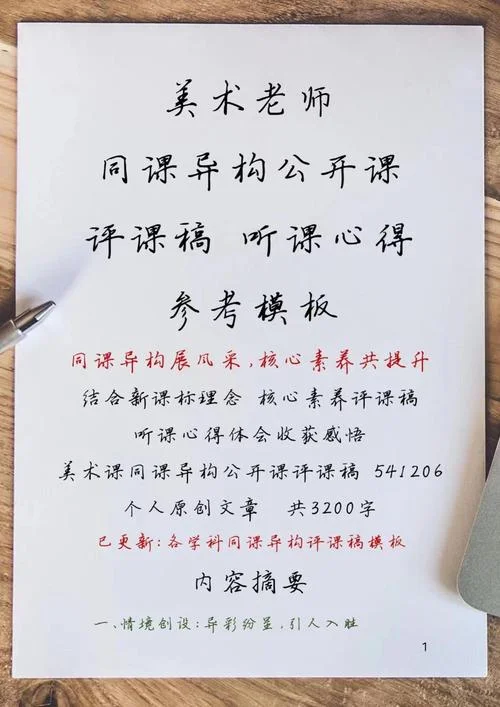 美术老师
同课异构公开课
评课稿 听课心得
参考模板
同课异构展风采,核心素养共提升
结合新课标理念 核心素养评课稿
听课心得体会收获感悟
美术课同课异构公开课评课稿 541206
个人原创文章 共3200字
已更新:各学科同课异构评课稿模板
内容摘要
一、情境创设:异彩纷呈,引人入胜
1